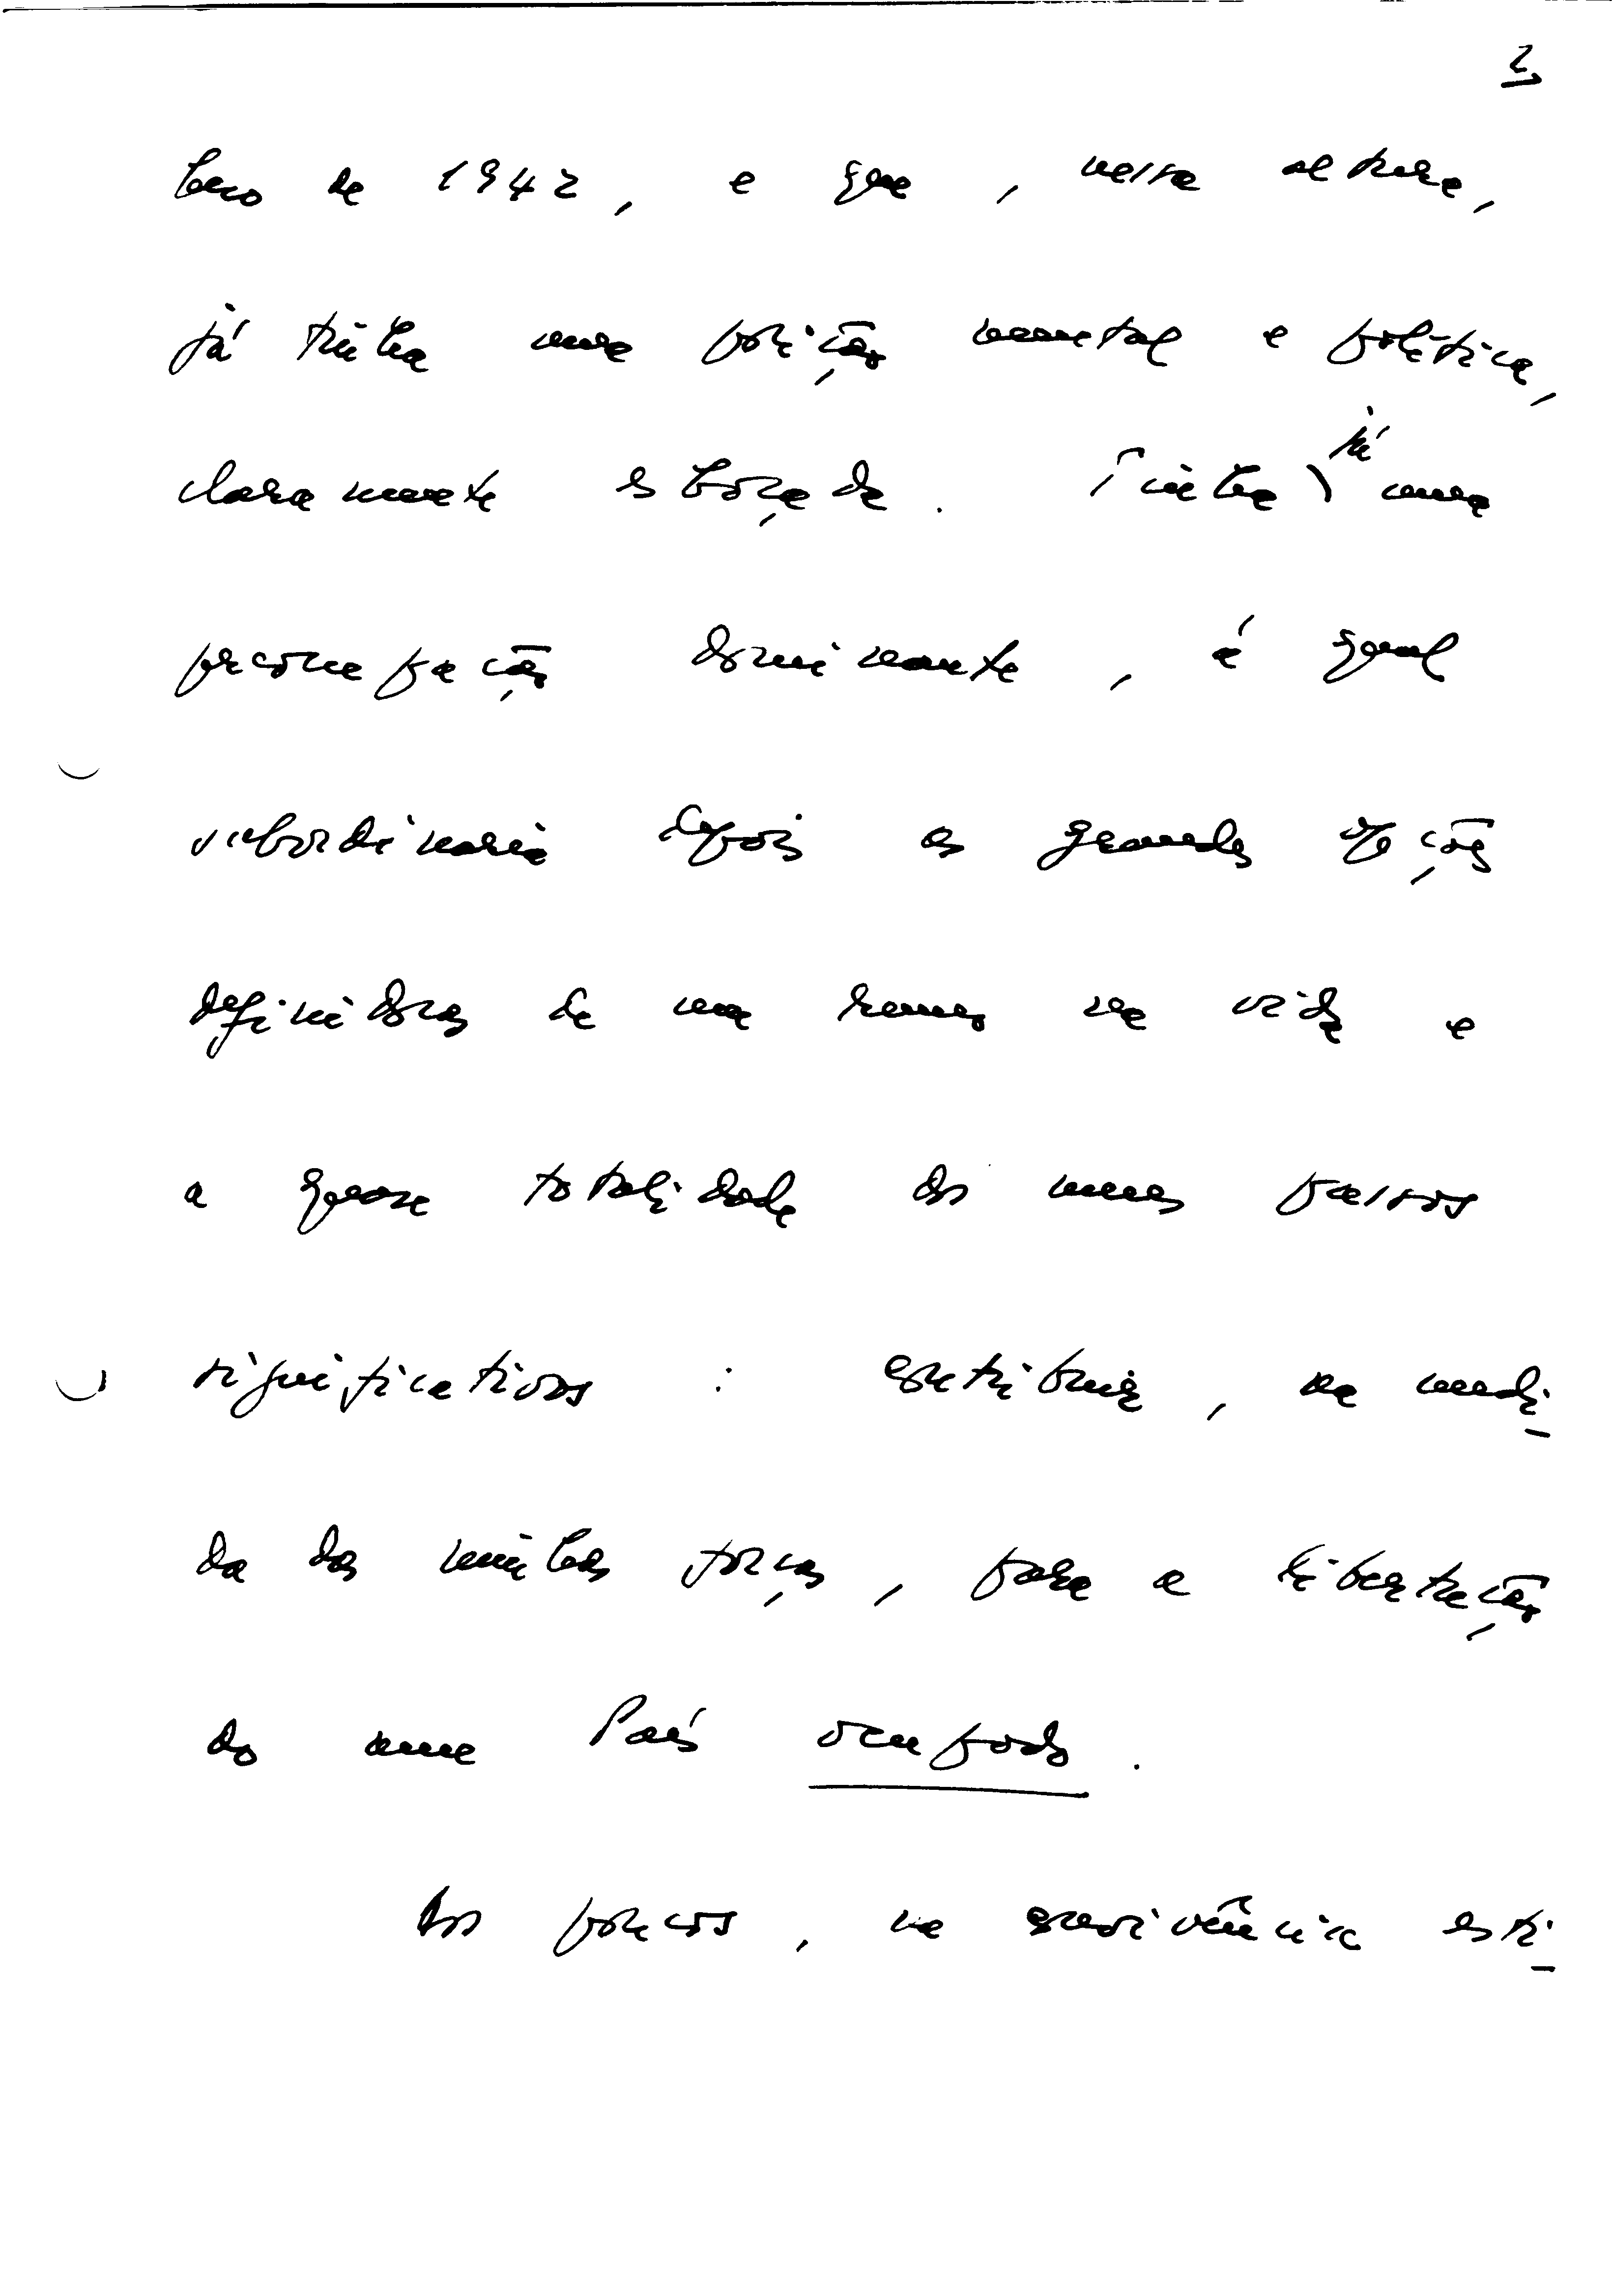 2
bro de 1942, e que, nessa altura,
já tinha uma posição mental e política,
claramente esboçada. Tinha já uma
preocupação dominante, à qual
subordinaria depois as grandes opções
definidoras de um rumo na vida e
a quase totalidade dos meus passos
significativos: contribuir, na medi-
da das minhas forças, para a libertação
do meu País ocupado.
Aos poucos, na convivência esti-